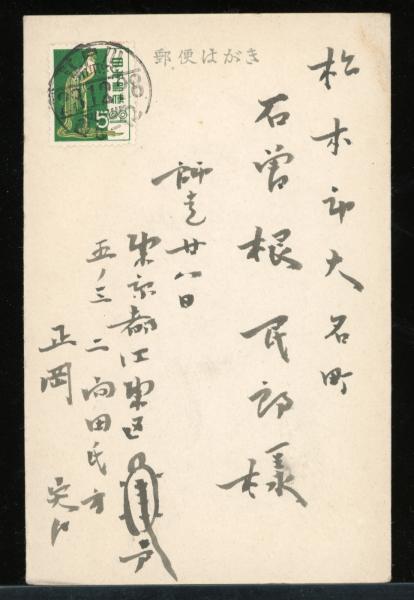 郵便はがき
日本郵便
5
松本市大名町
石曽根民郎様
師走廿八日
東京都江東区亀戸
五ノ三二向田氏方
正岡